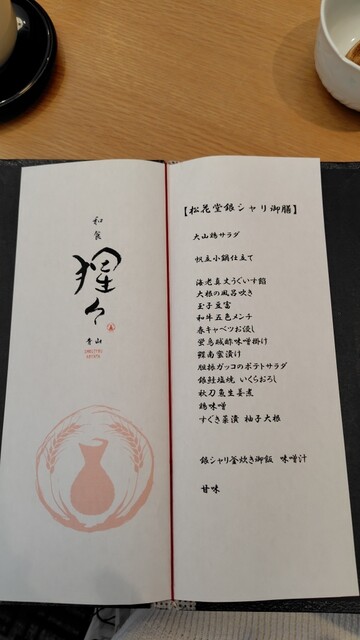 和食
猩々
青山
【松花堂銀シャリ御膳】
大山鶏サラダ
帆立小鍋仕立て
海老真丈うぐいす餡
大根の風呂吹き
玉子豆富
和牛五色メンチ
春キャベツお浸し
蛍烏賊酢味噌掛け
鰹南蛮漬け
燻振ガッコのポテトサラダ
銀鮭塩焼 いくらおろし
秋刀魚生姜煮
鶏味噌
すぐき菜漬 柚子大根
銀シャリ釜炊き御飯 味噌汁
甘味